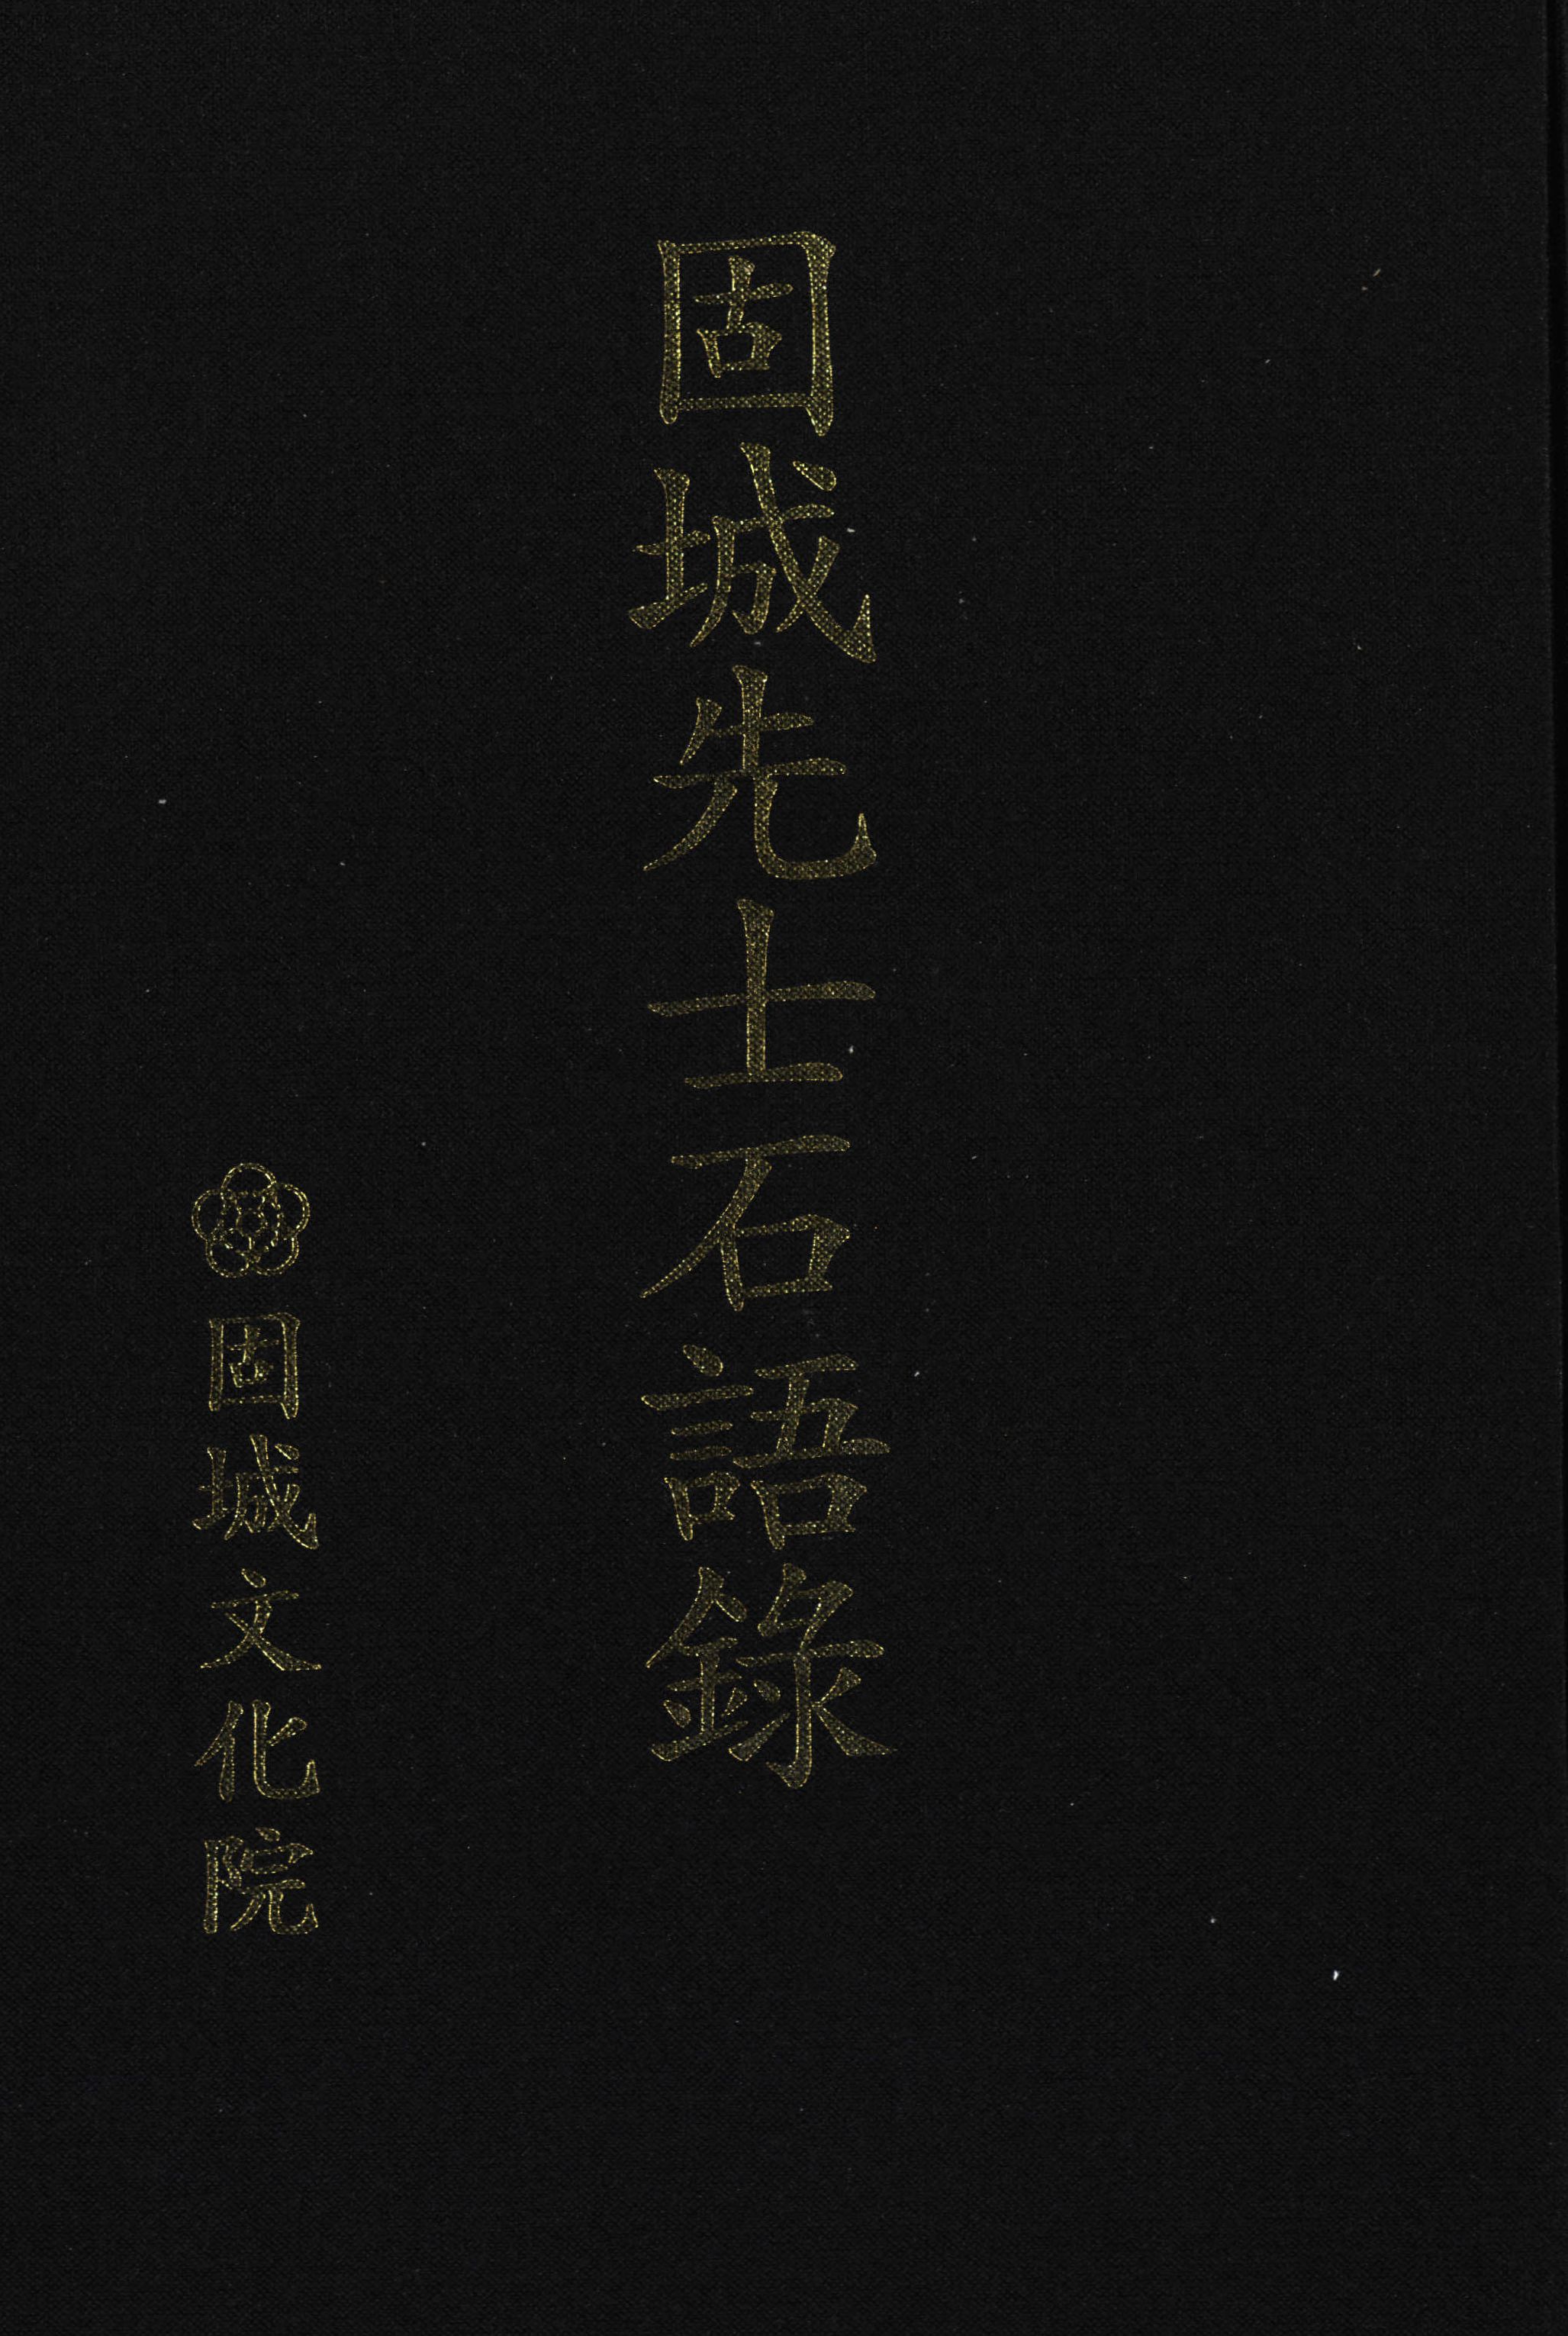 固城先士石語錄
固城文化院